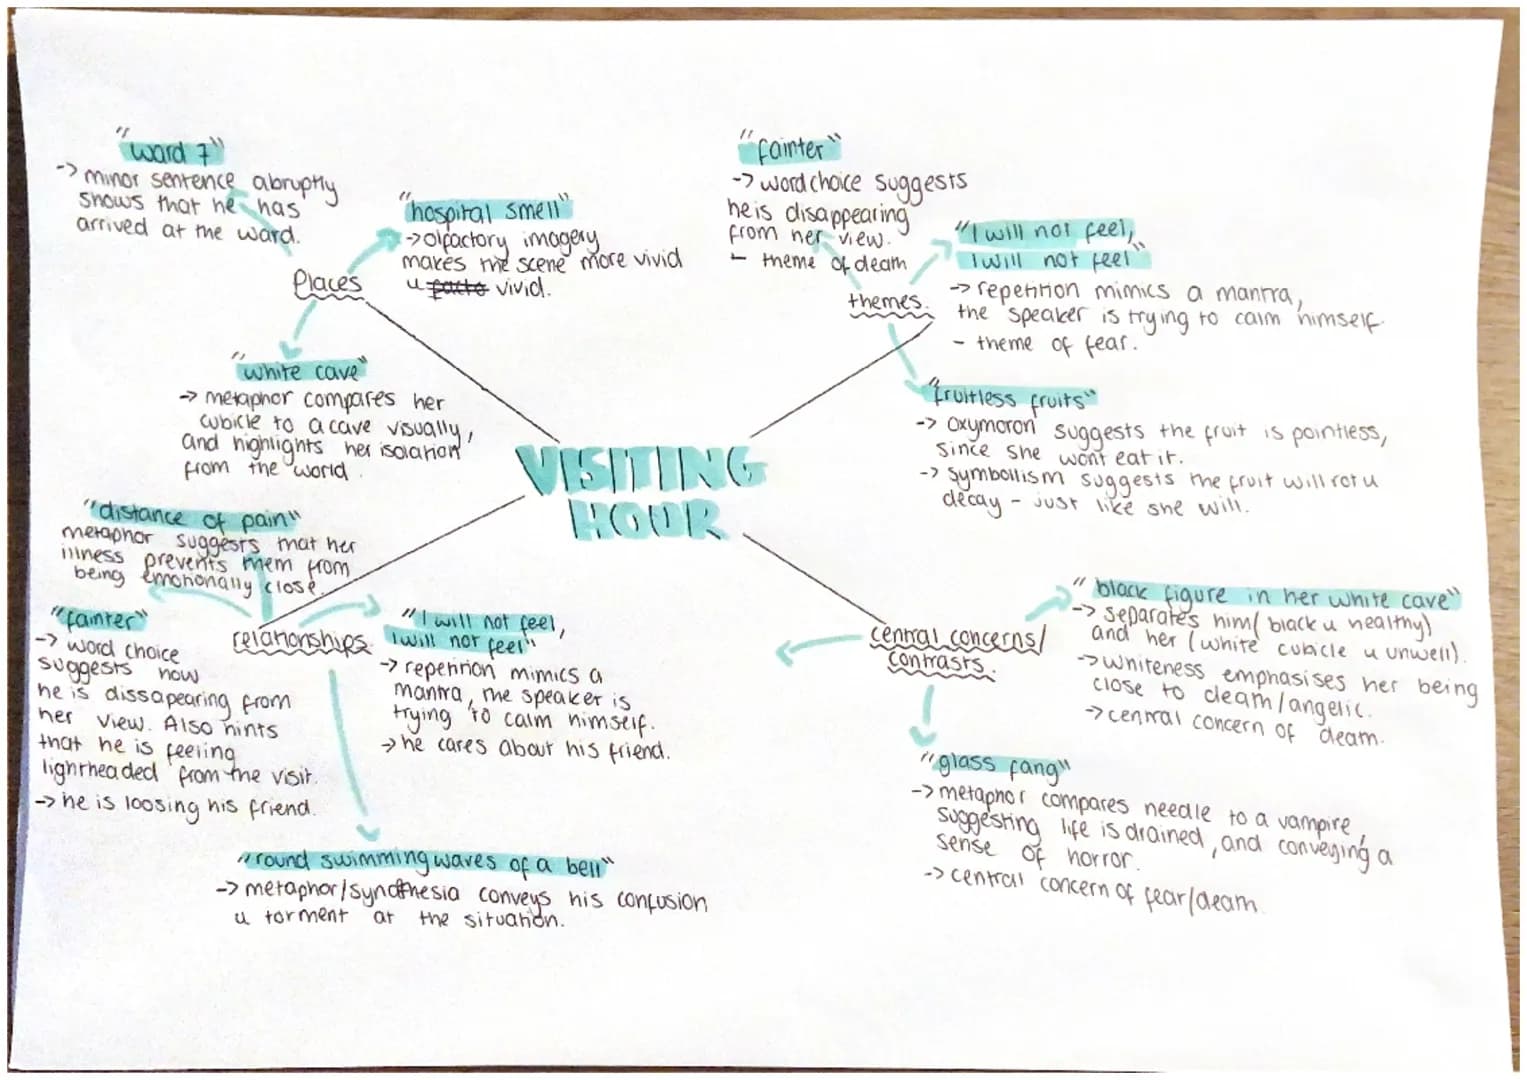 "ward 7"
-> minor sentence abruptly
shows that he has
arrived at the ward.
"hospital smell"
->olfactory imagery
makes the scene more vivid
u vivid.
Places
"white cave"
-> metaphor compares her
cubicle to a cave visually,
and highlights her isolation
from the world.
"fainter"
-> word choice suggests
he is disappearing
from her view.
- theme of death
themes.
"I will not feel,
I will not feel"
-> repetition mimics a mantra,
the speaker is trying to calm himself.
- theme of fear.
"fruitless fruits"
-> oxymoron suggests the fruit is pointless,
since she wont eat it.
-> symbollism suggests the fruit will rot u
decay - just like she will.
VISITING
HOUR
"distance of pain"
metaphor suggests that her
illness prevents them from
being emotionally close.
"fainter"
-> word choice
suggests how
he is dissapearing from
her view. Also hints
that he is feeling
lightheaded from the visit.
-> he is loosing his friend.
relationships.
"I will not feel,
I will not feel"
-> repetition mimics a
mantra, the speaker is
trying to calm himself.
-> he cares about his friend.
"round swimming waves of a bell"
-> metaphor/synthesia conveys his confusion
u torment at the situation.
central concerns/
contrasts.
"black figure in her white cave"
-> separates him (black u healthy)
and her (white cubicle u unwell).
-> whiteness emphasises her being
close to death/angelic.
-> central concern of death.
"glass fang"
-> metaphor compares needle to a vampire,
suggesting life is drained, and conveying a
sense of horror.
-> central concern of fear/death.